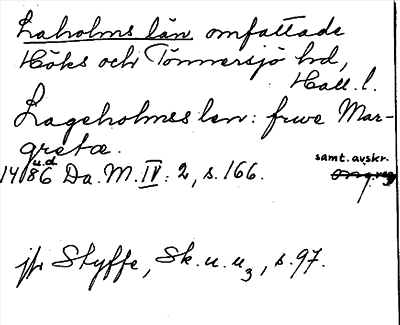 Laholms län omfattade
Höks och Tönnersjö hd,
Hall. l.
Lageholmss len: frwe Mar-
greta.
1486 u.d. Da. M. IV: 2, s. 166.
samt. avskr.
jfr Styffe, Sk. u. u3, s. 97.